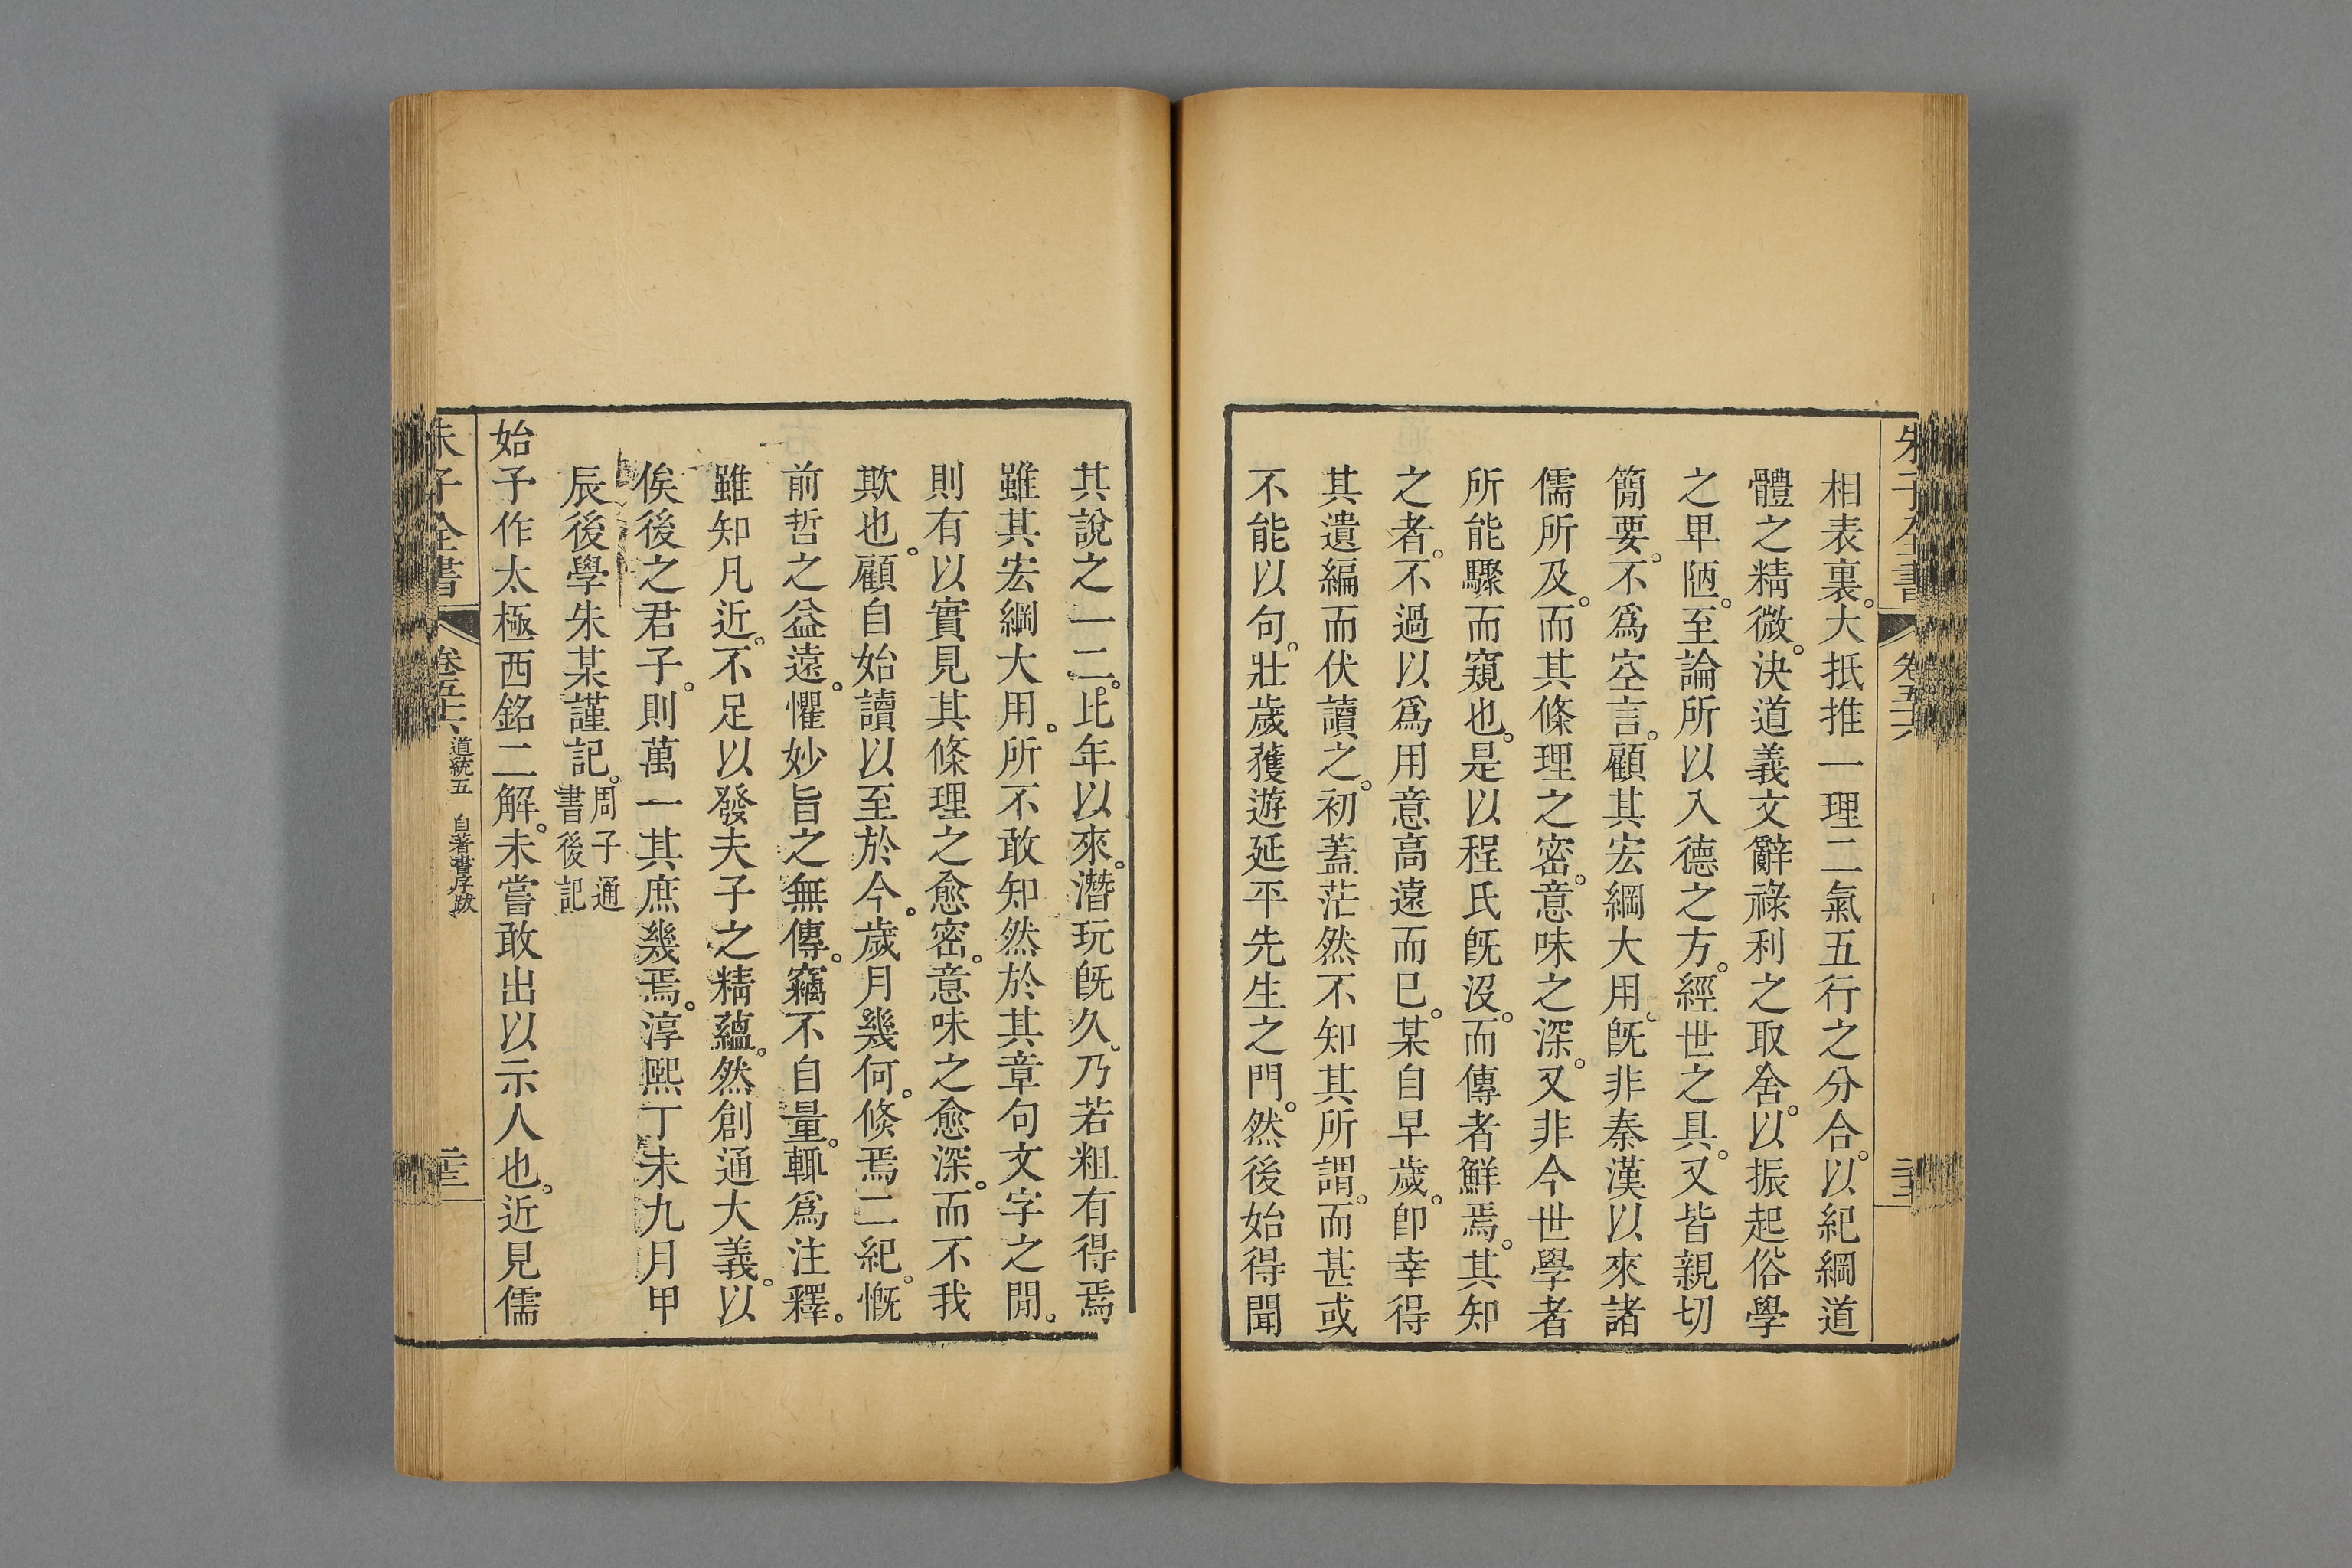 朱子全書 卷五十六
相表裏。大抵推一理二氣五行之分合。以紀綱道
體之精微。決道義文辭祿利之取舍。以振起俗學
之卑陋。至論所以入德之方。經世之具。又皆親切
簡要。不爲空言。顧其宏綱大用。旣非秦漢以來諸
儒所及。而其條理之密。意味之深。又非今世學者
所能驟而窺也。是以程氏旣沒。而傳者鮮焉。其知
之者。不過以爲用意高遠而已。某自早歲。卽幸得
其遺編而伏讀之。初蓋茫然不知其所謂。而甚或
不能以句。壯歲獲遊延平先生之門。然後始得聞
其說之一二。比年以來。潛玩旣久。乃若粗有得焉
雖其宏綱大用。所不敢知然於其章句文字之閒。
則有以實見其條理之愈密。意味之愈深。而不我
欺也。顧自始讀以至於今。歲月幾何。倏焉二紀。慨
前哲之益遠。懼妙旨之無傳。竊不自量。輒爲注釋。
雖知凡近。不足以發夫子之精蘊。然創通大義。以
俟後之君子。則萬一其庶幾焉。淳熙丁未九月甲
辰後學朱某謹記。周子通
書後記
始予作太極西銘二解。未嘗敢出以示人也。近見儒
朱子全書 卷五十六 道統五 自著書序跋 二十三